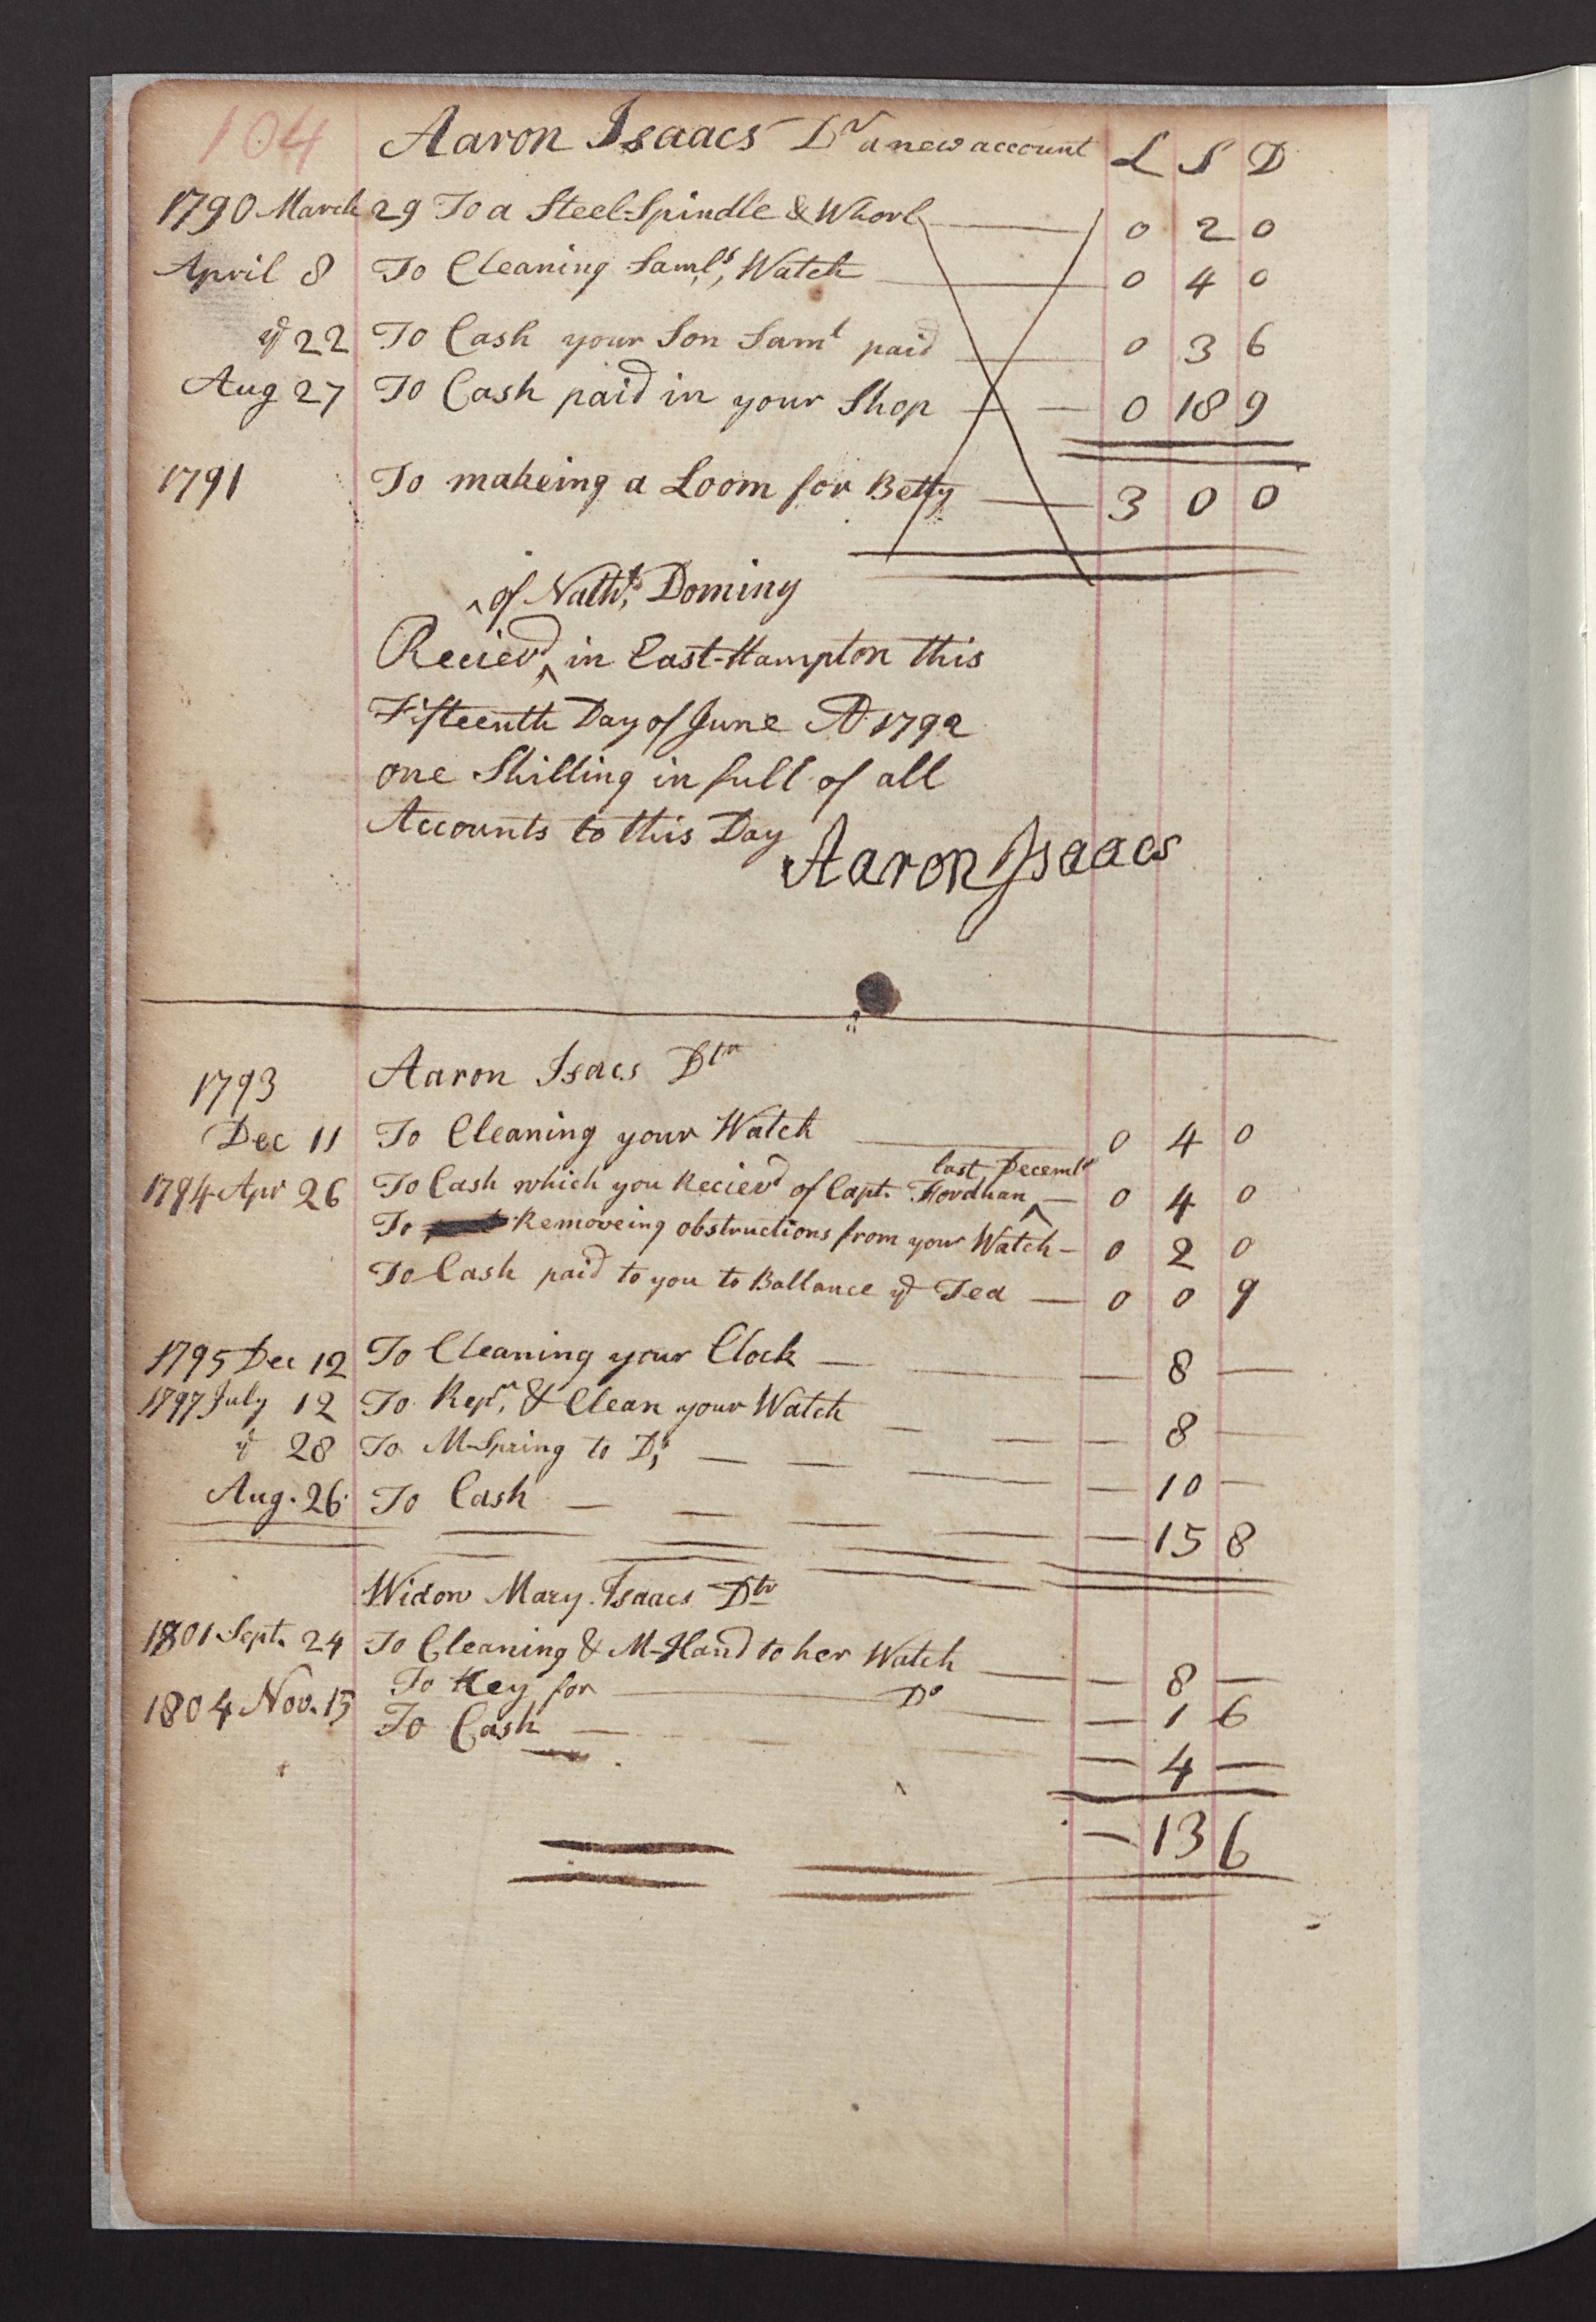 104 Aaron Isaacs Dr a new account L S D
1790 March 29 To a Steel-Spindle & Whorl 0 2 0
April 8 To Cleaning Saml's, Watch 0 4 0
22 To Cash your Son Saml paid 0 3 6
Aug 27 To Cash paid in your Shop 0 18 9
1791 To makeing a Loom for Betty 3 0 0
^ of Nathl, Dominy
Recievd ^ in East-Hampton this
Fifteenth Day of June AD 1792
one Shilling in full of all
Accounts to this Day
Aaron Isaacs
1793 Aaron Isacs Dtr
Dec 11 To Cleaning your Watch 0 4 0
last Decembr
1794 Apr 26 To Cash which you Recievd of Capt. Fordhan ^ 0 4 0
To Removeing obstructions from your Watch 0 2 0
To Cash paid to you to Ballance yd Tea 0 0 9
1795 Dec 12 To Cleaning your Clock — 8 —
1797 July 12 To Repr, & Clean your Watch — 8 —
28 To M-Spring to Do, — 10 —
Aug. 26 To Cash — 15 8
Widow Mary Isaacs Dtr
1801 Sept. 24 To Cleaning & M-Hand to her Watch — 8 —
To Key for Do — 1 6
1804 Nov. 15 To Cash — 4 —
— 13 6